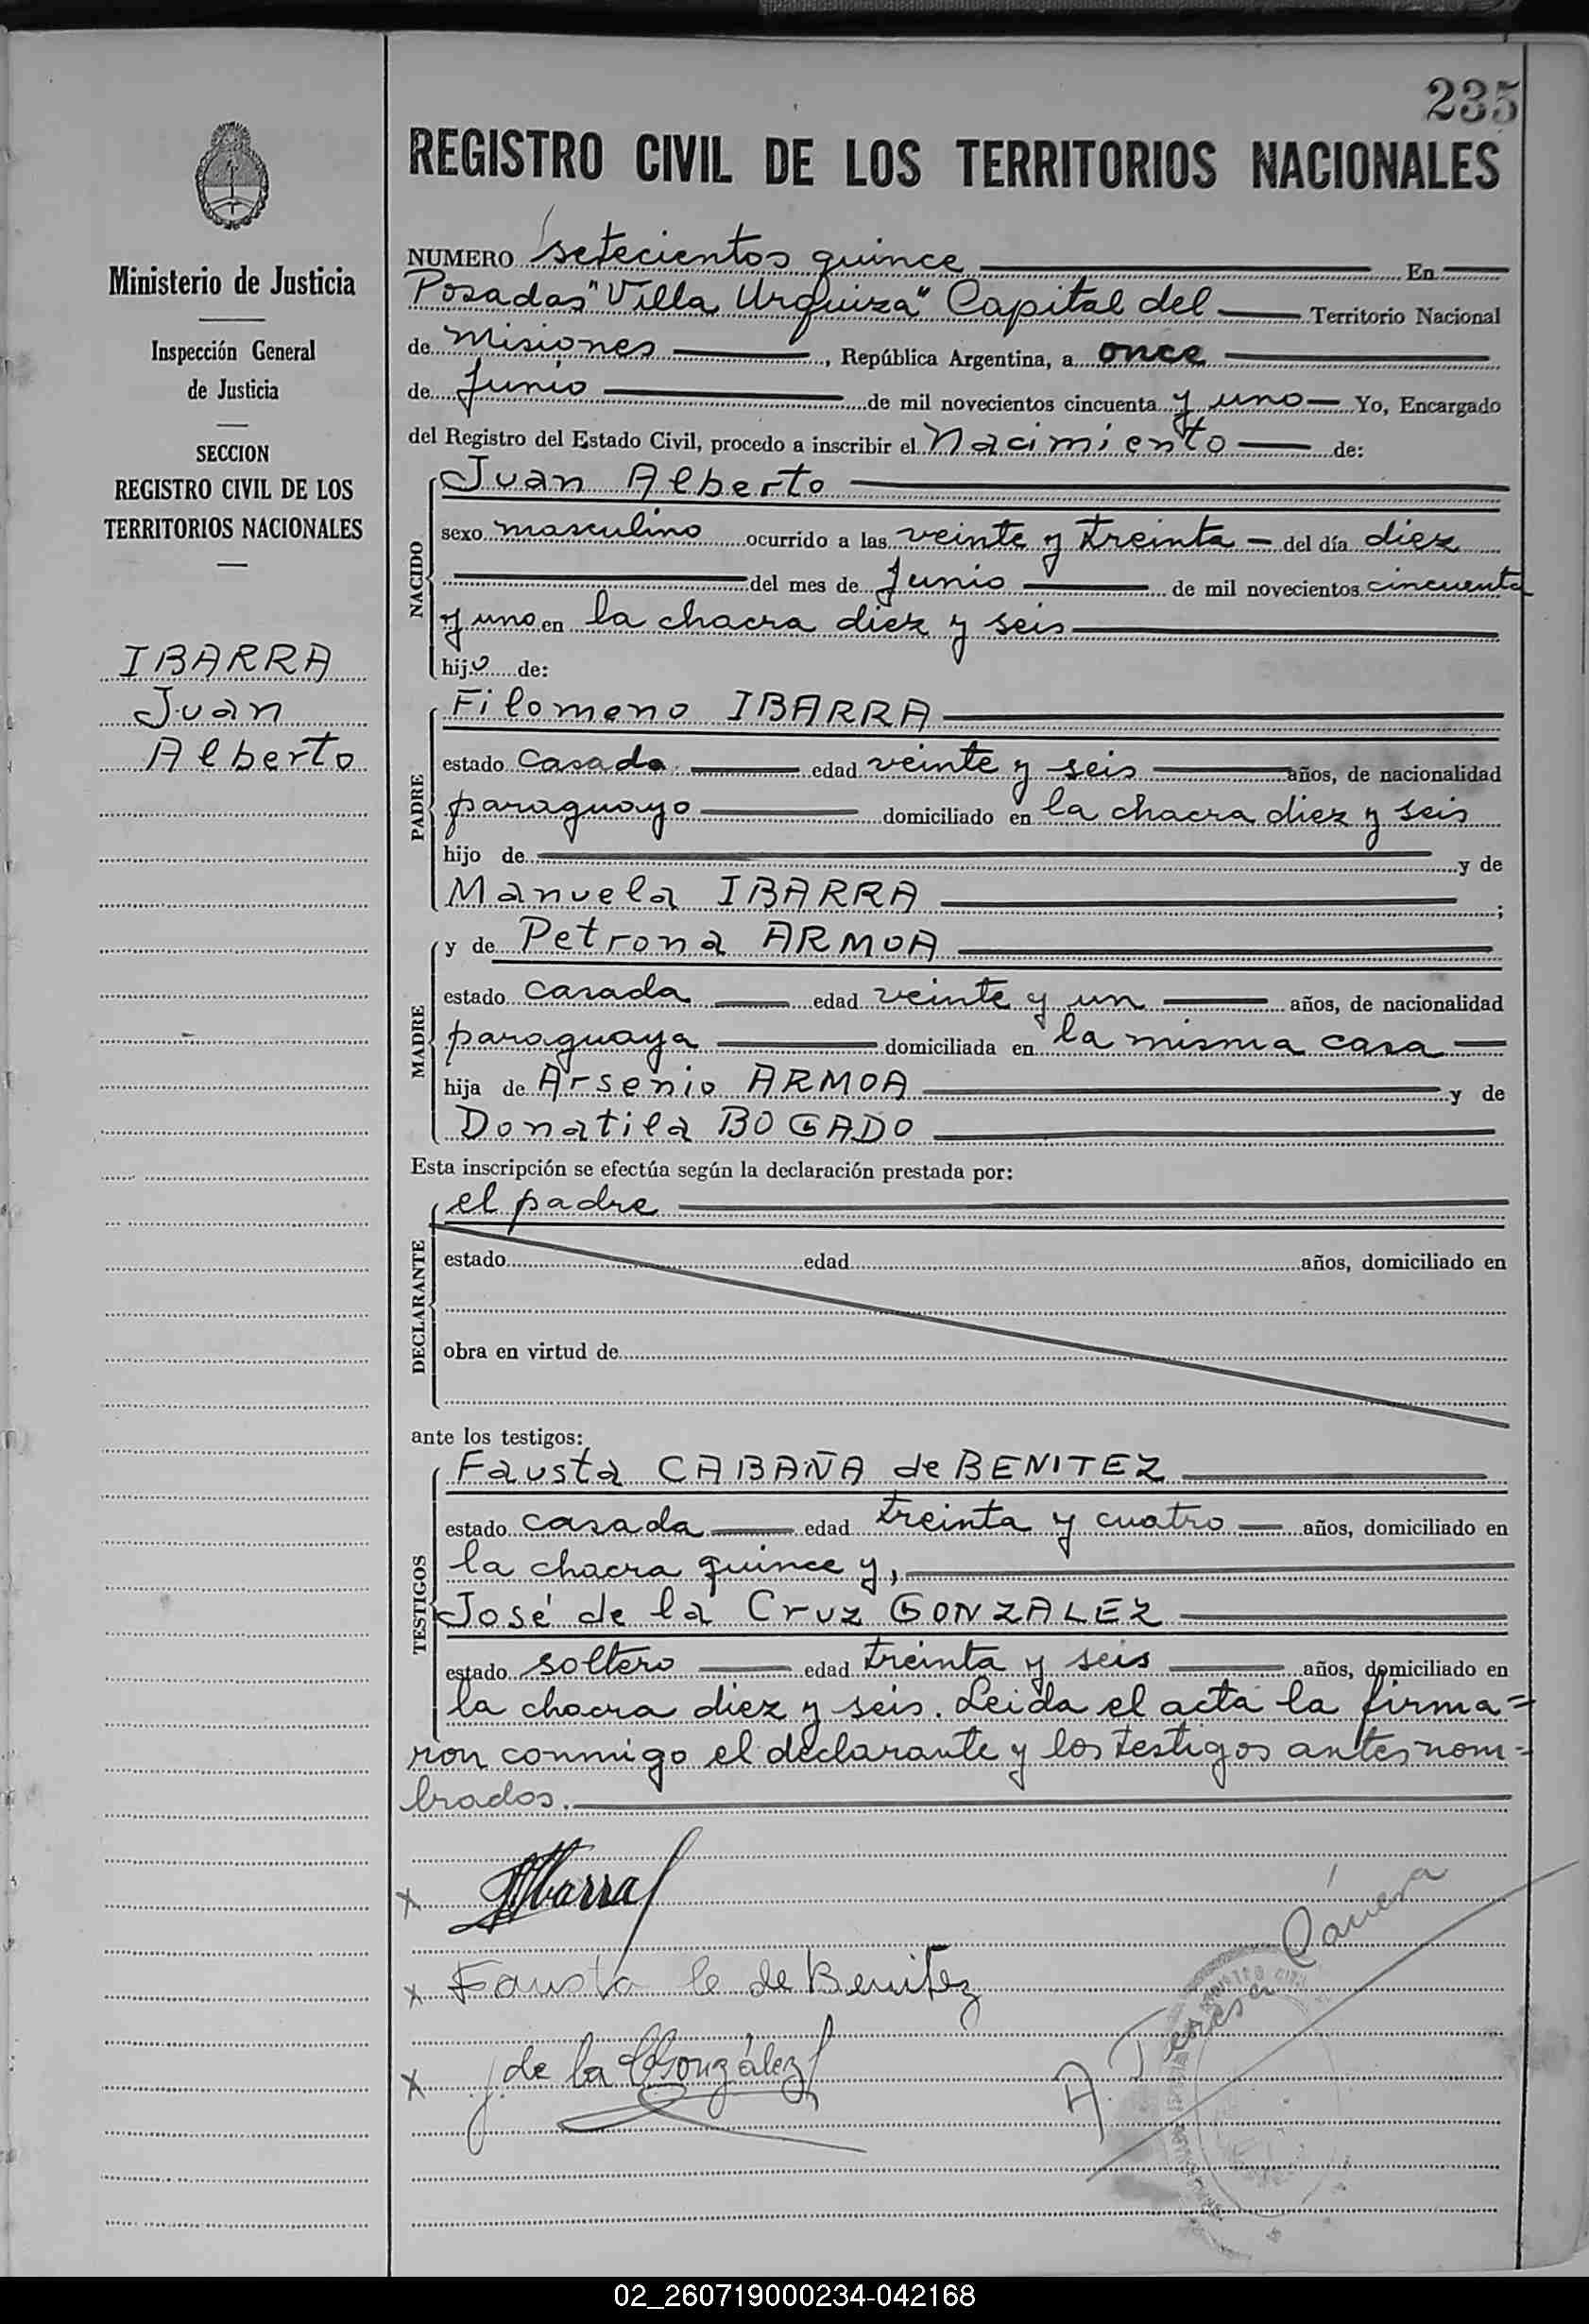 235
REGISTRO CIVIL DE LOS TERRITORIOS NACIONALES
Ministerio de Justicia
Inspección General
de Justicia
SECCION
REGISTRO CIVIL DE LOS
TERRITORIOS NACIONALES
IBARRA
Juan
Alberto
NUMERO setecientos quince En
Posadas "Villa Urquiza" Capital del Territorio Nacional
de Misiones, República Argentina, a once
de Junio de mil novecientos cincuenta y uno Yo, Encargado
del Registro del Estado Civil, procedo a inscribir el Nacimiento de:
NACIDO
Juan Alberto
sexo masculino ocurrido a las veinte y treinta del día diez
del mes de Junio de mil novecientos cincuenta
y uno en la chacra diez y seis
hijo de:
PADRE
Filomeno IBARRA
estado casado edad veinte y seis años, de nacionalidad
paraguayo domiciliado en la chacra diez y seis
hijo de y de
Manuela IBARRA ;
MADRE
y de Petrona ARMOA
estado casada edad veinte y un años, de nacionalidad
paraguaya domiciliada en la misma casa
hija de Arsenio ARMOA y de
Donatila BOGADO
Esta inscripción se efectúa según la declaración prestada por:
DECLARANTE
el padre
estado edad años, domiciliado en
obra en virtud de
ante los testigos:
TESTIGOS
Fausta CABAÑA de BENITEZ
estado casada edad treinta y cuatro años, domiciliado en
la chacra quince y,
José de la Cruz GONZALEZ
estado soltero edad treinta y seis años, domiciliado en
la chacra diez y seis. Leida el acta la firma=
ron conmigo el declarante y los testigos antes nom=
brados.
x Ibarra
x Fausta C de Benitez
x J. de la C González
A. Teresa Cánesa
02_260719000234-042168